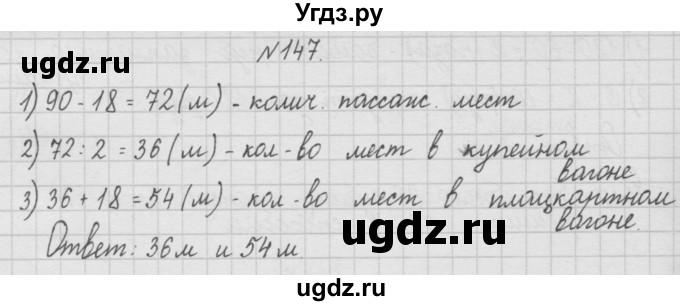 Угдз.ру
№147.
1) 90 - 18 = 72 (м) - колич. пассаж. мест
2) 72 : 2 = 36 (м) - кол-во мест в купейном
вагоне
3) 36 + 18 = 54 (м) - кол-во мест в плацкартном
вагоне.
Ответ: 36 м и 54 м.
ugdz.ru
ugdz.ru
ugdz.ru
ugdz.ru
ugdz.ru